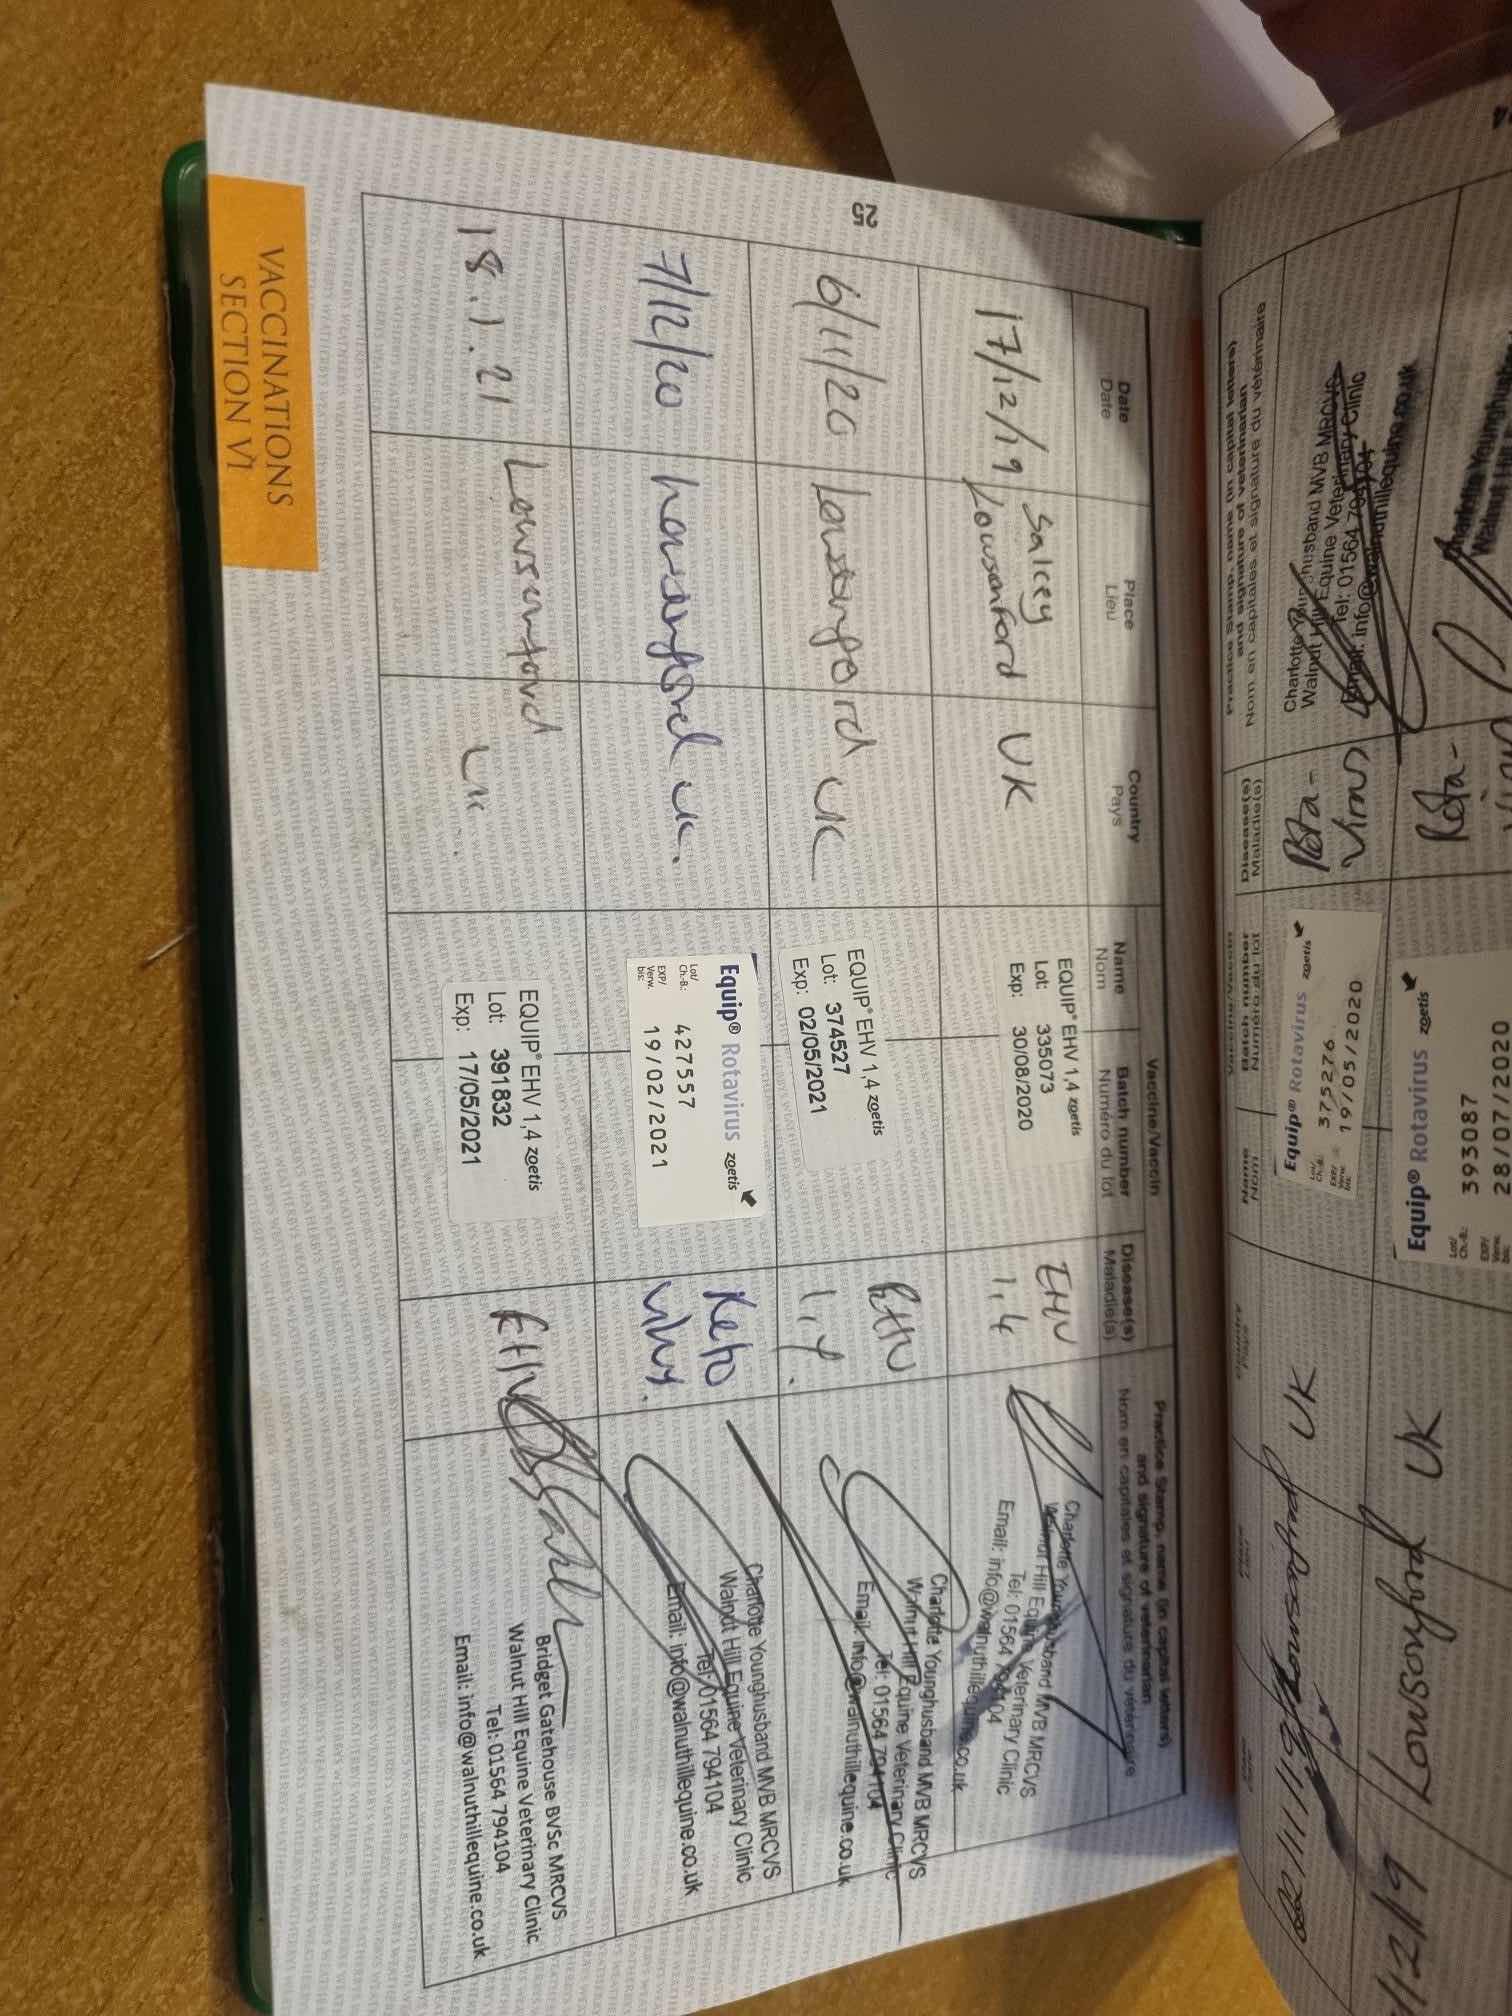 25
Date
Date
Place
Lieu
Country
Pays
Vaccine/Vaccin
Name
Nom
Batch number
Numéro du lot
Disease(s)
Maladie(s)
Practice Stamp, name (in capital letters)
and signature of veterinarian
Nom en capitales et signature du vétérinaire
17/12/19
Salcey
Lowsonford
UK
EQUIP® EHV 1,4 zoetis
Lot: 335073
Exp: 30/08/2020
EHV
1,4
Charlotte Younghusband MVB MRCVS
Walnut Hill Equine Veterinary Clinic
Tel: 01564 794104
Email: info@walnuthillequine.co.uk
6/11/20
Lowsonford
UK
EQUIP® EHV 1,4 zoetis
Lot: 374527
Exp: 02/05/2021
EHV
1,4.
Charlotte Younghusband MVB MRCVS
Walnut Hill Equine Veterinary Clinic
Tel: 01564 794104
Email: info@walnuthillequine.co.uk
7/12/20
UK.
Equip® Rotavirus zoetis
Lot/
Ch.-B.: 427557
EXP/
Verw.
bis: 19/02/2021
Charlotte Younghusband MVB MRCVS
Walnut Hill Equine Veterinary Clinic
Tel: 01564 794104
Email: info@walnuthillequine.co.uk
18.1.21
Lowsonford
UK
EQUIP® EHV 1,4 zoetis
Lot: 391832
Exp: 17/05/2021
EHV
Bridget Gatehouse BVSc MRCVS
Walnut Hill Equine Veterinary Clinic
Tel: 01564 794104
Email: info@walnuthillequine.co.uk
VACCINATIONS
SECTION VI
Lowsonford
UK
Equip® Rotavirus zoetis
Lot/
Ch.-B.: 393087
EXP/
Verw.
bis: 28/07/2020
Rota-
UK
Equip® Rotavirus zoetis
Lot/
Ch.-B.: 375276
EXP/
Verw.
bis: 19/05/2020
Rota-
Virus
Charlotte Younghusband MVB MRCVS
Walnut Hill Equine Veterinary Clinic
Tel: 01564 794104
Email: info@walnuthillequine.co.uk
Name
Nom
Batch number
Numéro du lot
Disease(s)
Maladie(s)
Nom en capitales et signature du vétérinaire